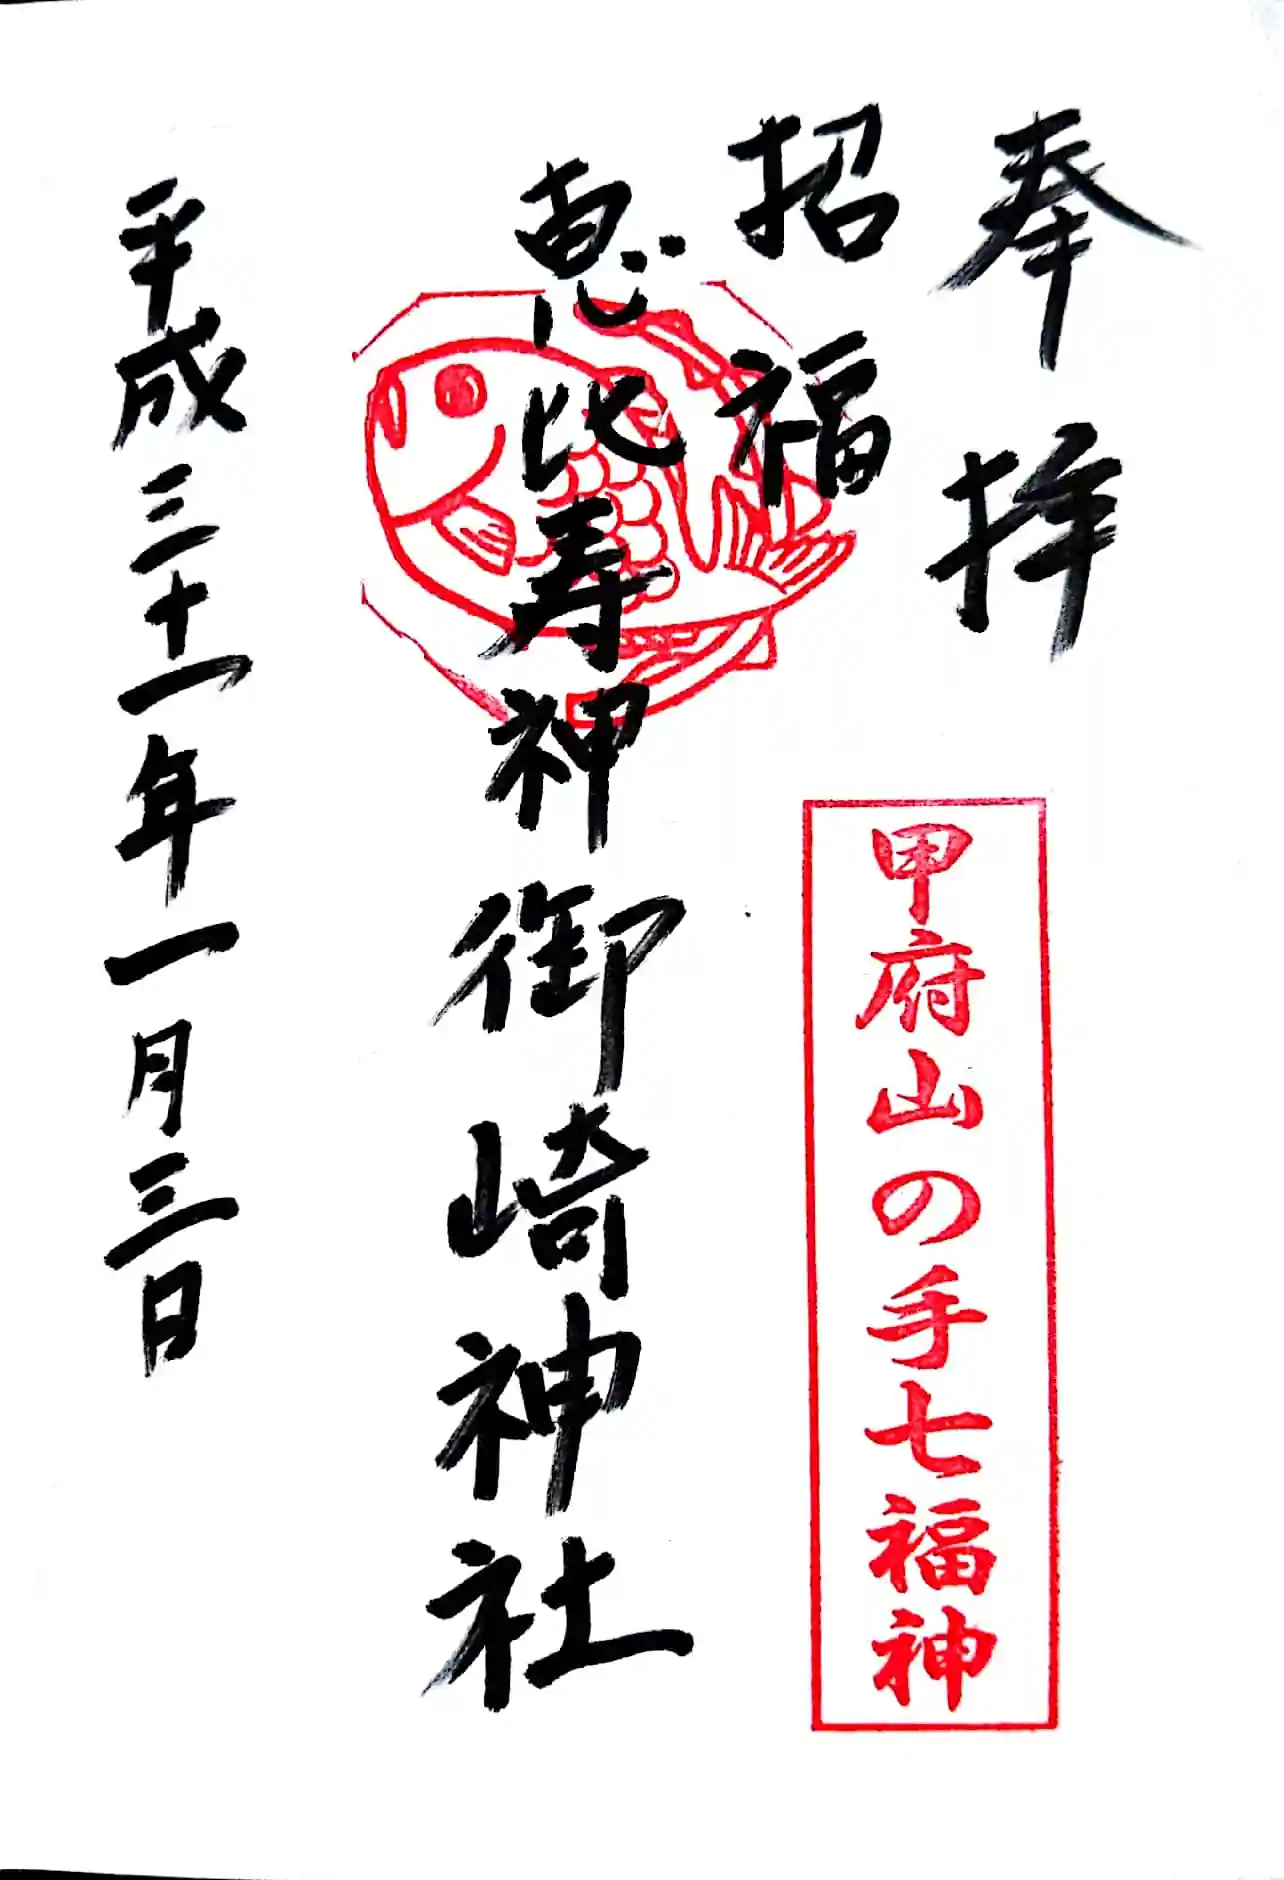 奉拝
甲府山の手七福神
招福
恵比寿神御崎神社
平成三十一年一月三日